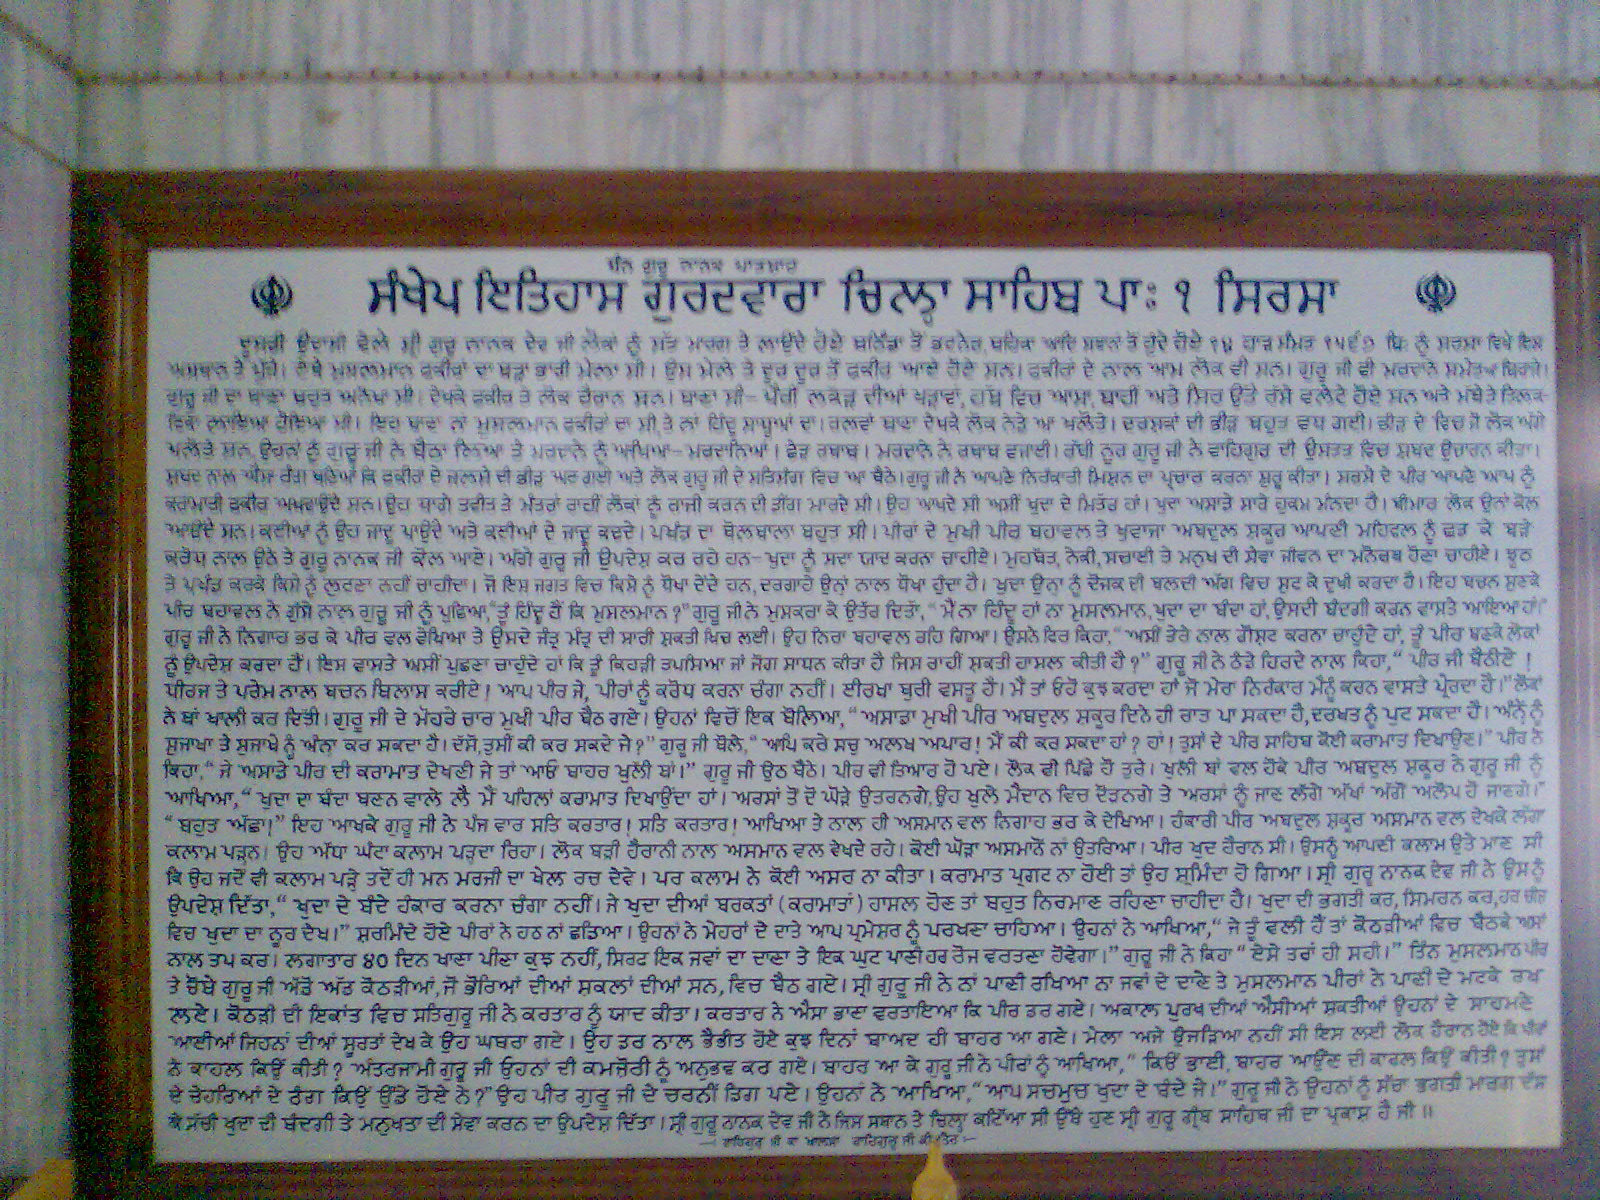 ਧੰਨ ਗੁਰੂ ਨਾਨਕ
ਸੰਖੇਪ ਇਤਿਹਾਸ ਗੁਰਦਵਾਰਾ ਚਿਲ੍ਹਾ ਸਾਹਿਬ ਪਾਃ ੧ ਸਿਰਸਾ
ਦੂਸਰੀ ਉਦਾਸੀ ਵੇਲੇ ਸ੍ਰੀ ਗੁਰੂ ਨਾਨਕ ਦੇਵ ਜੀ ਲੋਕਾਂ ਨੂੰ ਸੱਤ ਮਾਰਗ ਤੇ ਲਾਉਂਦੇ ਹੋਏ ਬਠਿੰਡਾ ਤੋਂ ਭਟਨੇਰ, ਆਦਿ ਸਥਾਨਾਂ ਤੋਂ ਹੁੰਦੇ ਹੋਏ ਹਾੜ ਸੰਮਤ ਨੂੰ ਸਰਸਾ ਵਿਖੇ ਇਸ
ਅਸਥਾਨ ਤੇ ਪੁੱਜੇ। ਏਥੇ ਮੁਸਲਮਾਨ ਫਕੀਰਾਂ ਦਾ ਬੜਾ ਭਾਰੀ ਮੇਲਾ ਸੀ। ਉਸ ਮੇਲੇ ਤੇ ਦੂਰ ਦੂਰ ਤੋਂ ਫਕੀਰ ਆਏ ਹੋਏ ਸਨ। ਫਕੀਰਾਂ ਦੇ ਨਾਲ ਆਮ ਲੋਕ ਵੀ ਸਨ। ਗੁਰੂ ਜੀ ਵੀ ਮਰਦਾਨੇ ਸਮੇਤ ਬਿਰਾਜੇ।
ਗੁਰੂ ਜੀ ਦਾ ਬਾਣਾ ਬਹੁਤ ਅਨੋਖਾ ਸੀ। ਦੇਖਕੇ ਫਕੀਰ ਤੇ ਲੋਕ ਹੈਰਾਨ ਸਨ। ਬਾਣਾ ਸੀ- ਪੈਰੀਂ ਲਕੜ ਦੀਆਂ ਖੜਾਵਾਂ, ਹੱਥ ਵਿਚ ਆਸਾ, ਬਾਹੀਂ ਅਤੇ ਸਿਰ ਉਤੇ ਰੱਸੇ ਵਲੇਟੇ ਹੋਏ ਸਨ ਅਤੇ ਮੱਥੇ ਤੇ ਤਿਲਕ-
ਟਿੱਕਾ ਲਾਇਆ ਹੋਇਆ ਸੀ। ਇਹ ਬਾਣਾ ਨਾਂ ਮੁਸਲਮਾਨ ਫਕੀਰਾਂ ਦਾ ਸੀ ਤੇ ਨਾਂ ਹਿੰਦੂ ਸਾਧੂਆਂ ਦਾ। ਰਲਵਾਂ ਬਾਣਾ ਦੇਖਕੇ ਲੋਕ ਨੇੜੇ ਆ ਖਲੋਤੇ। ਦਰਸ਼ਕਾਂ ਦੀ ਭੀੜ ਬਹੁਤ ਵਧ ਗਈ। ਭੀੜ ਦੇ ਵਿਚ ਜੋ ਲੋਕ ਅੱਗੇ
ਖਲੋਤੇ ਸਨ, ਉਹਨਾਂ ਨੂੰ ਗੁਰੂ ਜੀ ਨੇ ਬੈਠਾ ਲਿਆ ਤੇ ਮਰਦਾਨੇ ਨੂੰ ਆਖਿਆ- ਮਰਦਾਨਿਆਂ। ਛੇੜ ਰਬਾਬ। ਮਰਦਾਨੇ ਨੇ ਰਬਾਬ ਵਜਾਈ। ਰੱਬੀ ਨੂਰ ਗੁਰੂ ਜੀ ਨੇ ਵਾਹਿਗੁਰੂ ਦੀ ਉਸਤਤ ਵਿਚ ਸ਼ਬਦ ਉਚਾਰਨ ਕੀਤਾ।
ਸ਼ਬਦ ਨਾਲ ਐਸਾ ਰੰਗ ਬਣਿਆ ਕਿ ਫਕੀਰਾਂ ਦੇ ਜਲਸੇ ਦੀ ਭੀੜ ਘਟ ਗਈ ਅਤੇ ਲੋਕ ਗੁਰੂ ਜੀ ਦੇ ਸਤਿਸੰਗ ਵਿਚ ਆ ਬੈਠੇ। ਗੁਰੂ ਜੀ ਨੇ ਆਪਣੇ ਨਿਰੰਕਾਰੀ ਮਿਸ਼ਨ ਦਾ ਪ੍ਰਚਾਰ ਕਰਨਾ ਸ਼ੁਰੂ ਕੀਤਾ। ਸਰਸੇ ਦੇ ਪੀਰ ਆਪਣੇ ਆਪ ਨੂੰ
ਕਰਾਮਾਤੀ ਫਕੀਰ ਅਖਵਾਉਂਦੇ ਸਨ। ਉਹ ਧਾਗੇ ਤਵੀਤ ਤੇ ਮੰਤਰਾਂ ਰਾਹੀਂ ਲੋਕਾਂ ਨੂੰ ਰਾਜੀ ਕਰਨ ਦੀ ਡੀਂਗ ਮਾਰਦੇ ਸੀ। ਉਹ ਆਖਦੇ ਸੀ ਅਸੀਂ ਖੁਦਾ ਦੇ ਮਿੱਤਰ ਹਾਂ। ਖੁਦਾ ਅਸਾਡੇ ਸਾਰੇ ਹੁਕਮ ਮੰਨਦਾ ਹੈ। ਬੀਮਾਰ ਲੋਕ ਉਨਾਂ ਕੋਲ
ਆਉਂਦੇ ਸਨ। ਕਈਆਂ ਨੂੰ ਉਹ ਜਾਦੂ ਪਾਉਂਦੇ ਅਤੇ ਕਈਆਂ ਦੇ ਜਾਦੂ ਕਢਦੇ। ਪਖੰਡ ਦਾ ਬੋਲਬਾਲਾ ਬਹੁਤ ਸੀ। ਪੀਰਾਂ ਦੇ ਮੁਖੀ ਪੀਰ ਬਹਾਵਲ ਤੇ ਖੁਵਾਜਾ ਅਬਦੁਲ ਸ਼ਕੂਰ ਆਪਣੀ ਮਹਿਫਲ ਨੂੰ ਛਡ ਕੇ ਬੜੇ
ਕਰੋਧ ਨਾਲ ਉਠੇ ਤੇ ਗੁਰੂ ਨਾਨਕ ਜੀ ਕੋਲ ਆਏ। ਅੱਗੇ ਗੁਰੂ ਜੀ ਉਪਦੇਸ਼ ਕਰ ਰਹੇ ਹਨ- ਖੁਦਾ ਨੂੰ ਸਦਾ ਯਾਦ ਕਰਨਾ ਚਾਹੀਏ। ਮੁਹਬੱਤ, ਨੇਕੀ, ਸਚਾਈ ਤੇ ਮਨੁਖ ਦੀ ਸੇਵਾ ਜੀਵਨ ਦਾ ਮਨੋਰਥ ਹੋਣਾ ਚਾਹੀਏ। ਝੂਠ
ਤੇ ਪਖੰਡ ਕਰਕੇ ਕਿਸੇ ਨੂੰ ਲੁਟਣਾ ਨਹੀਂ ਚਾਹੀਦਾ। ਜੋ ਇਸ ਜਗਤ ਵਿਚ ਕਿਸੇ ਨੂੰ ਧੋਖਾ ਦੇਂਦੇ ਹਨ, ਦਰਗਾਹੇ ਉਨ੍ਹਾਂ ਨਾਲ ਧੋਖਾ ਹੁੰਦਾ ਹੈ। ਖੁਦਾ ਉਨ੍ਹਾਂ ਨੂੰ ਦੋਜਕ ਦੀ ਬਲਦੀ ਅੱਗ ਵਿਚ ਸੁਟ ਕੇ ਦੁਖੀ ਕਰਦਾ ਹੈ। ਇਹ ਬਚਨ ਸੁਣਕੇ
ਪੀਰ ਬਹਾਵਲ ਨੇ ਗੁੱਸੇ ਨਾਲ ਗੁਰੂ ਜੀ ਨੂੰ ਪੁਛਿਆ, "ਤੂੰ ਹਿੰਦੂ ਹੈਂ ਕਿ ਮੁਸਲਮਾਨ ?" ਗੁਰੂ ਜੀ ਨੇ ਮੁਸਕਰਾ ਕੇ ਉੱਤਰ ਦਿਤਾ, "ਮੈਂ ਨਾ ਹਿੰਦੂ ਹਾਂ ਨਾ ਮੁਸਲਮਾਨ, ਖੁਦਾ ਦਾ ਬੰਦਾ ਹਾਂ, ਉਸਦੀ ਬੰਦਗੀ ਕਰਨ ਵਾਸਤੇ ਆਇਆ ਹਾਂ।"
ਗੁਰੂ ਜੀ ਨੇ ਨਿਗਾਹ ਭਰ ਕੇ ਪੀਰ ਵਲ ਵੇਖਿਆ ਤੇ ਉਸਦੇ ਜੰਤ੍ਰ ਮੰਤ੍ਰ ਦੀ ਸਾਰੀ ਸ਼ਕਤੀ ਖਿਚ ਲਈ। ਉਹ ਨਿਰਾ ਬਹਾਵਲ ਰਹਿ ਗਿਆ। ਉਸਨੇ ਫਿਰ ਕਿਹਾ, "ਅਸੀਂ ਤੇਰੇ ਨਾਲ ਗੋਸ਼ਟ ਕਰਨਾ ਚਾਹੁੰਦੇ ਹਾਂ, ਤੂੰ ਪੀਰ ਬਣਕੇ ਲੋਕਾਂ
ਨੂੰ ਉਪਦੇਸ਼ ਕਰਦਾ ਹੈਂ। ਇਸ ਵਾਸਤੇ ਅਸੀਂ ਪੁਛਣਾ ਚਾਹੁੰਦੇ ਹਾਂ ਕਿ ਤੂੰ ਕਿਹੜੀ ਤਪਸਿਆ ਜਾਂ ਜੋਗ ਸਾਧਨ ਕੀਤਾ ਹੈ ਜਿਸ ਰਾਹੀਂ ਸ਼ਕਤੀ ਹਾਸਲ ਕੀਤੀ ਹੈ ?" ਗੁਰੂ ਜੀ ਨੇ ਠੰਡੇ ਹਿਰਦੇ ਨਾਲ ਕਿਹਾ, "ਪੀਰ ਜੀ ਬੈਠੀਏ !
ਧੀਰਜ ਤੇ ਪਰੇਮ ਨਾਲ ਬਚਨ ਬਿਲਾਸ ਕਰੀਏ! ਆਪ ਪੀਰ ਜੇ, ਪੀਰਾਂ ਨੂੰ ਕਰੋਧ ਕਰਨਾ ਚੰਗਾ ਨਹੀਂ। ਈਰਖਾ ਬੁਰੀ ਵਸਤੂ ਹੈ। ਮੈਂ ਤਾਂ ਓਹੋ ਕੁਝ ਕਰਦਾ ਹਾਂ ਜੋ ਮੇਰਾ ਨਿਰੰਕਾਰ ਮੈਨੂੰ ਕਰਨ ਵਾਸਤੇ ਪ੍ਰੇਰਦਾ ਹੈ।" ਲੋਕਾਂ
ਨੇ ਥਾਂ ਖਾਲੀ ਕਰ ਦਿੱਤੀ। ਗੁਰੂ ਜੀ ਦੇ ਮੋਹਰੇ ਚਾਰ ਮੁਖੀ ਪੀਰ ਬੈਠ ਗਏ। ਉਹਨਾਂ ਵਿਚੋਂ ਇਕ ਬੋਲਿਆ, "ਅਸਾਡਾ ਮੁਖੀ ਪੀਰ ਅਬਦੁਲ ਸ਼ਕੂਰ ਦਿਨੇ ਹੀ ਰਾਤ ਪਾ ਸਕਦਾ ਹੈ, ਦਰਖਤ ਨੂੰ ਪੁਟ ਸਕਦਾ ਹੈ। ਅੰਨ੍ਹੇ ਨੂੰ
ਸੁਜਾਖਾ ਤੇ ਸੁਜਾਖੇ ਨੂੰ ਅੰਨਾ ਕਰ ਸਕਦਾ ਹੈ। ਦੱਸੋ, ਤੁਸੀਂ ਕੀ ਕਰ ਸਕਦੇ ਜੇ?" ਗੁਰੂ ਜੀ ਬੋਲੇ, "ਆਪਿ ਕਰੇ ਸਚੁ ਅਲਖ ਅਪਾਰ! ਮੈਂ ਕੀ ਕਰ ਸਕਦਾ ਹਾਂ? ਹਾਂ! ਤੁਸਾਂ ਦੇ ਪੀਰ ਸਾਹਿਬ ਕੋਈ ਕਰਾਮਾਤ ਦਿਖਾਉਣ।" ਪੀਰ ਨੇ
ਕਿਹਾ, "ਜੇ ਅਸਾਡੇ ਪੀਰ ਦੀ ਕਰਾਮਾਤ ਦੇਖਣੀ ਜੇ ਤਾਂ ਆਓ ਬਾਹਰ ਖੁਲੀ ਥਾਂ।" ਗੁਰੂ ਜੀ ਉਠ ਬੈਠੇ। ਪੀਰ ਵੀ ਤਿਆਰ ਹੋ ਪਏ। ਲੋਕ ਵੀ ਪਿੱਛੇ ਹੋ ਤੁਰੇ। ਖੁਲੀ ਥਾਂ ਵਲ ਹੋਕੇ ਪੀਰ ਅਬਦੁਲ ਸ਼ਕੂਰ ਨੇ ਗੁਰੂ ਜੀ ਨੂੰ
ਆਖਿਆ, "ਖੁਦਾ ਦਾ ਬੰਦਾ ਬਣਨ ਵਾਲੇ ਲੈ ਮੈਂ ਪਹਿਲਾਂ ਕਰਾਮਾਤ ਦਿਖਾਉਂਦਾ ਹਾਂ। ਅਰਸਾਂ ਤੋਂ ਦੋ ਘੋੜੇ ਉਤਰਨਗੇ, ਉਹ ਖੁਲੇ ਮੈਦਾਨ ਵਿਚ ਦੌੜਨਗੇ ਤੇ ਅਰਸਾਂ ਨੂੰ ਜਾਣ ਲੱਗੇ ਅੱਖਾਂ ਅੱਗੋਂ ਅਲੋਪ ਹੋ ਜਾਣਗੇ।"
"ਬਹੁਤ ਅੱਛਾ!" ਇਹ ਆਖਕੇ ਗੁਰੂ ਜੀ ਨੇ ਪੰਜ ਵਾਰ ਸਤਿ ਕਰਤਾਰ! ਸਤਿ ਕਰਤਾਰ! ਆਖਿਆ ਤੇ ਨਾਲ ਹੀ ਅਸਮਾਨ ਵਲ ਨਿਗਾਹ ਭਰ ਕੇ ਦੇਖਿਆ। ਹੰਕਾਰੀ ਪੀਰ ਅਬਦੁਲ ਸ਼ਕੂਰ ਅਸਮਾਨ ਵਲ ਦੇਖਕੇ ਲੱਗਾ
ਕਲਾਮ ਪੜ੍ਹਨ। ਉਹ ਅੱਧਾ ਘੰਟਾ ਕਲਾਮ ਪੜ੍ਹਦਾ ਰਿਹਾ। ਲੋਕ ਬੜੀ ਹੈਰਾਨੀ ਨਾਲ ਅਸਮਾਨ ਵਲ ਵੇਖਦੇ ਰਹੇ। ਕੋਈ ਘੋੜਾ ਅਸਮਾਨੋਂ ਨਾਂ ਉਤਰਿਆ। ਪੀਰ ਖੁਦ ਹੈਰਾਨ ਸੀ। ਉਸਨੂੰ ਆਪਣੀ ਕਲਾਮ ਉਤੇ ਮਾਣ ਸੀ
ਕਿ ਉਹ ਜਦੋਂ ਵੀ ਕਲਾਮ ਪੜ੍ਹੇ ਤਦੋਂ ਹੀ ਮਨ ਮਰਜੀ ਦਾ ਖੇਲ ਰਚ ਦੇਵੇ। ਪਰ ਕਲਾਮ ਨੇ ਕੋਈ ਅਸਰ ਨਾ ਕੀਤਾ। ਕਰਾਮਾਤ ਪ੍ਰਗਟ ਨਾ ਹੋਈ ਤਾਂ ਉਹ ਸ਼ਰਮਿੰਦਾ ਹੋ ਗਿਆ। ਸ੍ਰੀ ਗੁਰੂ ਨਾਨਕ ਦੇਵ ਜੀ ਨੇ ਉਸ ਨੂੰ
ਉਪਦੇਸ਼ ਦਿੱਤਾ, "ਖੁਦਾ ਦੇ ਬੰਦੇ ਹੰਕਾਰ ਕਰਨਾ ਚੰਗਾ ਨਹੀਂ। ਜੇ ਖੁਦਾ ਦੀਆਂ ਬਰਕਤਾਂ (ਕਰਾਮਾਤਾਂ) ਹਾਸਲ ਹੋਣ ਤਾਂ ਬਹੁਤ ਨਿਰਮਾਣ ਰਹਿਣਾ ਚਾਹੀਦਾ ਹੈ। ਖੁਦਾ ਦੀ ਭਗਤੀ ਕਰ, ਸਿਮਰਨ ਕਰ, ਹਰ ਚੀਜ਼
ਵਿਚ ਖੁਦਾ ਦਾ ਨੂਰ ਦੇਖ।" ਸ਼ਰਮਿੰਦੇ ਹੋਏ ਪੀਰਾਂ ਨੇ ਹਠ ਨਾਂ ਛਡਿਆ। ਉਹਨਾਂ ਨੇ ਮੇਹਰਾਂ ਦੇ ਦਾਤੇ ਆਪ ਪ੍ਰਮੇਸ਼ਰ ਨੂੰ ਪਰਖਣਾ ਚਾਹਿਆ। ਉਹਨਾਂ ਨੇ ਆਖਿਆ, "ਜੇ ਤੂੰ ਵਲੀ ਹੈਂ ਤਾਂ ਕੋਠੜੀਆਂ ਵਿਚ ਬੈਠਕੇ ਅਸਾਂ
ਨਾਲ ਤਪ ਕਰ। ਲਗਾਤਾਰ ੪੦ ਦਿਨ ਖਾਣਾ ਪੀਣਾ ਕੁਝ ਨਹੀਂ, ਸਿਰਫ ਇਕ ਜਵਾਂ ਦਾ ਦਾਣਾ ਤੇ ਇਕ ਘੁਟ ਪਾਣੀ ਹਰ ਰੋਜ ਵਰਤਣਾ ਹੋਵੇਗਾ।" ਗੁਰੂ ਜੀ ਨੇ ਕਿਹਾ "ਏਸੇ ਤਰਾਂ ਹੀ ਸਹੀ।" ਤਿੰਨ ਮੁਸਲਮਾਨ ਪੀਰ
ਤੇ ਚੌਥੇ ਗੁਰੂ ਜੀ ਅੱਡੋ ਅੱਡ ਕੋਠੜੀਆਂ, ਜੋ ਭੋਰਿਆਂ ਦੀਆਂ ਸ਼ਕਲਾਂ ਦੀਆਂ ਸਨ, ਵਿਚ ਬੈਠ ਗਏ। ਸ੍ਰੀ ਗੁਰੂ ਜੀ ਨੇ ਨਾਂ ਪਾਣੀ ਰਖਿਆ ਨਾ ਜਵਾਂ ਦੇ ਦਾਣੇ ਤੇ ਮੁਸਲਮਾਨ ਪੀਰਾਂ ਨੇ ਪਾਣੀ ਦੇ ਮਟਕੇ ਰਖ
ਲਏ। ਕੋਠੜੀ ਦੀ ਇਕਾਂਤ ਵਿਚ ਸਤਿਗੁਰੂ ਜੀ ਨੇ ਕਰਤਾਰ ਨੂੰ ਯਾਦ ਕੀਤਾ। ਕਰਤਾਰ ਨੇ ਐਸਾ ਭਾਣਾ ਵਰਤਾਇਆ ਕਿ ਪੀਰ ਡਰ ਗਏ। ਅਕਾਲ ਪੁਰਖ ਦੀਆਂ ਐਸੀਆਂ ਸ਼ਕਤੀਆਂ ਉਹਨਾਂ ਦੇ ਸਾਹਮਣੇ
ਆਈਆਂ ਜਿਹਨਾਂ ਦੀਆਂ ਸੂਰਤਾਂ ਦੇਖ ਕੇ ਉਹ ਘਬਰਾ ਗਏ। ਉਹ ਡਰ ਨਾਲ ਭੈਭੀਤ ਹੋਏ ਕੁਝ ਦਿਨਾਂ ਬਾਅਦ ਹੀ ਬਾਹਰ ਆ ਗਏ। ਮੇਲਾ ਅਜੇ ਉਜੜਿਆ ਨਹੀਂ ਸੀ ਇਸ ਲਈ ਲੋਕ ਹੈਰਾਨ ਹੋਏ ਕਿ ਪੀਰਾਂ
ਨੇ ਕਾਹਲ ਕਿਉਂ ਕੀਤੀ? ਅੰਤਰਜਾਮੀ ਗੁਰੂ ਜੀ ਓਹਨਾਂ ਦੀ ਕਮਜੋਰੀ ਨੂੰ ਅਨੁਭਵ ਕਰ ਗਏ। ਬਾਹਰ ਆ ਕੇ ਗੁਰੂ ਜੀ ਨੇ ਪੀਰਾਂ ਨੂੰ ਆਖਿਆ, "ਕਿਓਂ ਭਾਈ, ਬਾਹਰ ਆਉਣ ਦੀ ਕਾਹਲ ਕਿਉਂ ਕੀਤੀ? ਤੁਸਾਂ
ਦੇ ਚੇਹਰਿਆਂ ਦੇ ਰੰਗ ਕਿਉਂ ਉੱਡੇ ਹੋਏ ਨੇ?" ਉਹ ਪੀਰ ਗੁਰੂ ਜੀ ਦੇ ਚਰਨੀਂ ਡਿਗ ਪਏ। ਉਹਨਾਂ ਨੇ ਆਖਿਆ, "ਆਪ ਸਚਮੁਚ ਖੁਦਾ ਦੇ ਬੰਦੇ ਜੇ।" ਗੁਰੂ ਜੀ ਨੇ ਉਹਨਾਂ ਨੂੰ ਸੱਚਾ ਭਗਤੀ ਮਾਰਗ ਦੱਸ
ਕੇ ਸੱਚੀ ਖੁਦਾ ਦੀ ਬੰਦਗੀ ਤੇ ਮਨੁਖਤਾ ਦੀ ਸੇਵਾ ਕਰਨ ਦਾ ਉਪਦੇਸ਼ ਦਿੱਤਾ। ਸ੍ਰੀ ਗੁਰੂ ਨਾਨਕ ਦੇਵ ਜੀ ਨੇ ਜਿਸ ਸਥਾਨ ਤੇ ਚਿਲ੍ਹਾ ਕਟਿਆ ਸੀ ਉੱਥੇ ਹੁਣ ਸ੍ਰੀ ਗੁਰੂ ਗ੍ਰੰਥ ਸਾਹਿਬ ਜੀ ਦਾ ਪ੍ਰਕਾਸ਼ ਹੈ ਜੀ ॥
ਵਾਹਿਗੁਰੂ ਜੀ ਕਾ ਖਾਲਸਾ ਵਾਹਿਗੁਰੂ ਜੀ ਕੀ ਫਤਿਹ